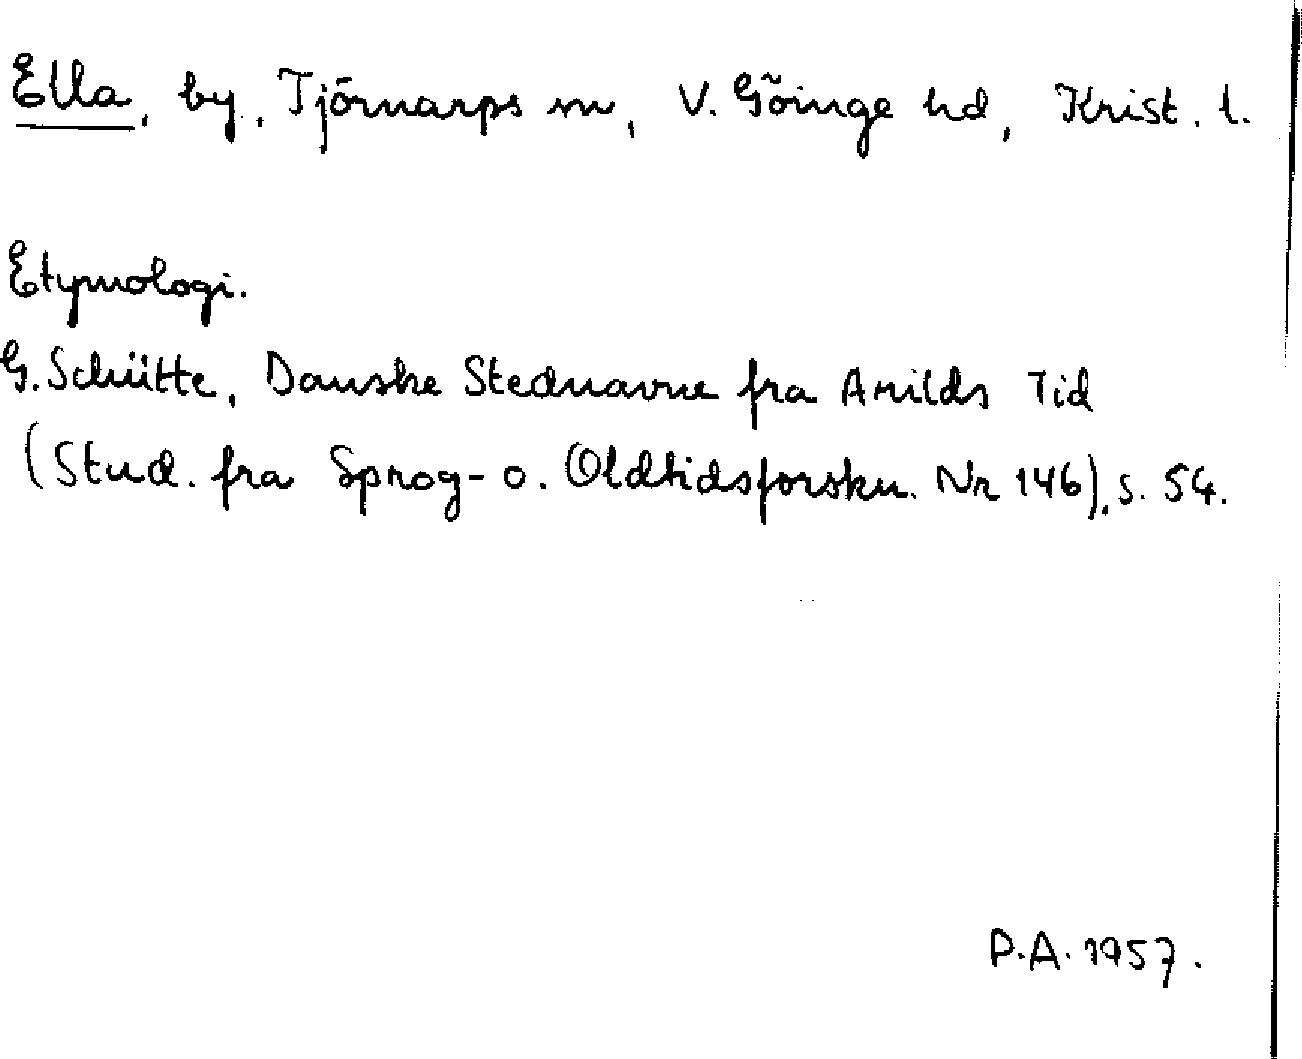 Ella, by, Tjörnarps sn, V. Göinge hd, Krist. l.
Etymologi.
G. Schütte, Danske Stednavne fra Arilds Tid
(Stud. fra Sprog- o. Oldtidsforskn. Nr 146), s. 54.
P.A. 1957.